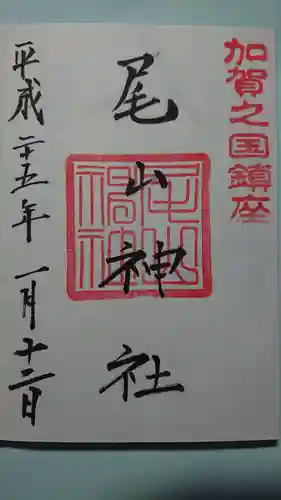 加賀之国鎮座
尾山神社
平成二十五年 一月十三日